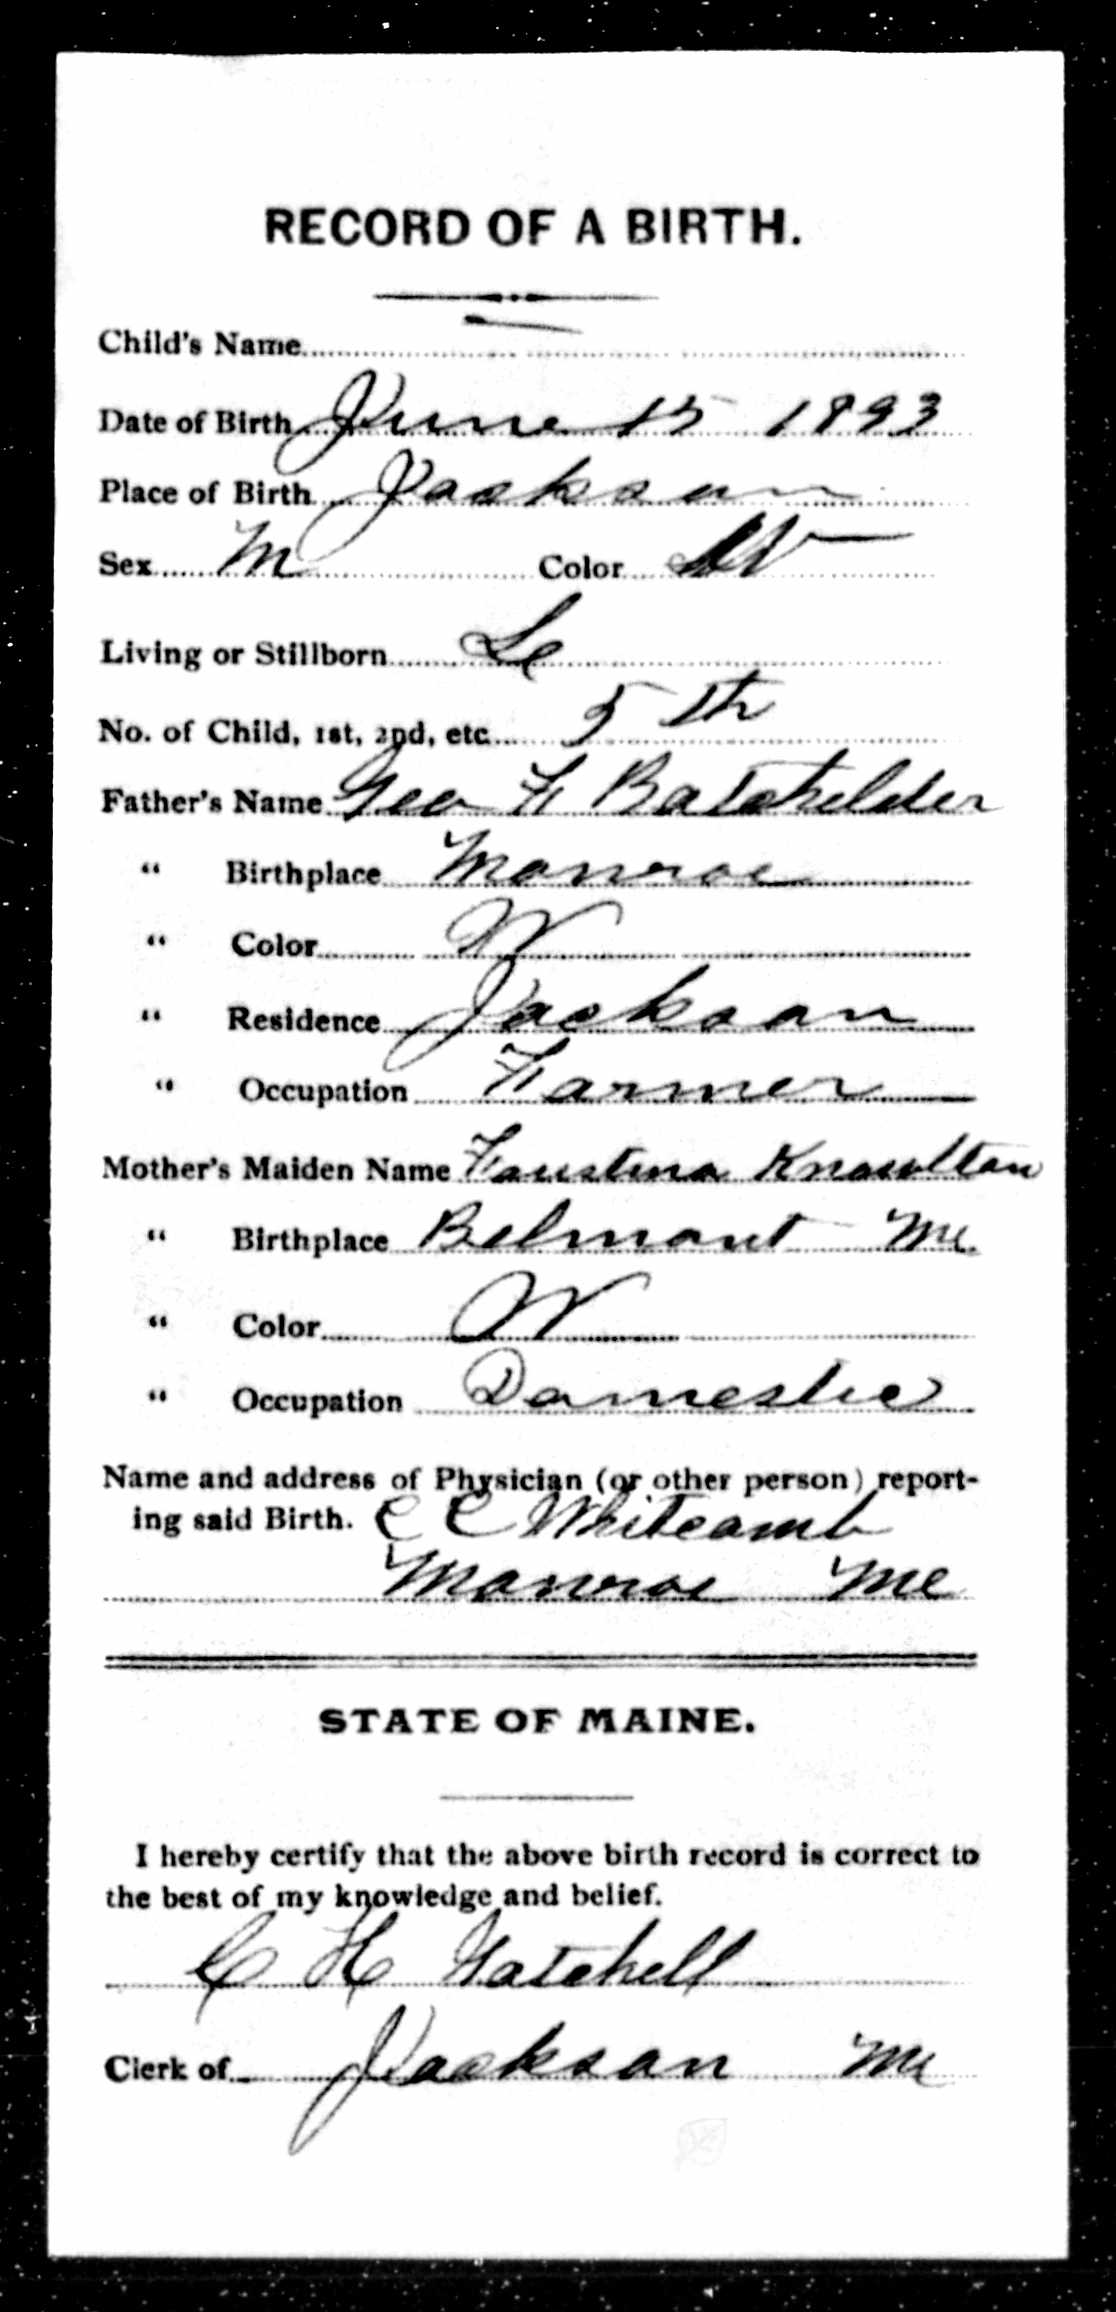 RECORD OF A BIRTH.
Child's Name
Date of Birth June 15 1893
Place of Birth Jackson
Sex M Color W
Living or Stillborn L
No. of Child, 1st, 2nd, etc. 5th
Father's Name Geo F Batchelder
" Birthplace Monroe
" Color W
" Residence Jackson
" Occupation Farmer
Mother's Maiden Name Faustina Knowlton
" Birthplace Belmont Me.
" Color W
" Occupation Domestic
Name and address of Physician (or other person) report-
ing said Birth. C C Whitcomb
Monroe Me
STATE OF MAINE.
I hereby certify that the above birth record is correct to
the best of my knowledge and belief.
C H
Clerk of Jackson Me